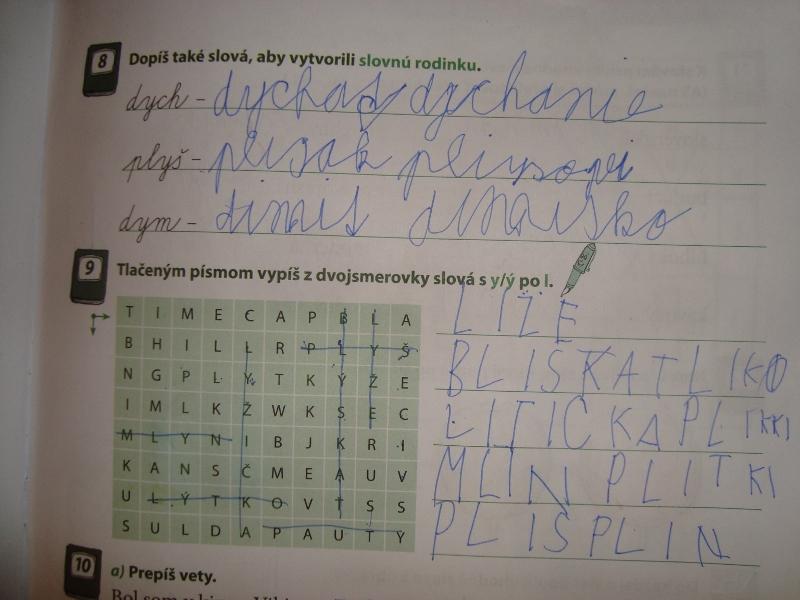 8 Dopíš také slová, aby vytvorili slovnú rodinku.
dych - dychať dychanie
plyš - plišak
dym -
9 Tlačeným písmom vypíš z dvojsmerovky slová s y/ý po l.
T I M E C A P B L A
B H I L L R P L Y Š
N G P L Y T K Ý Ž E
I M L K Ž W K S E C
M L Y N I B J K R I
K A N S Č M E A U V
U L Ý T K O V T S S
S U L D A P A U T Y
LIŽE
BLISKAT LIKO
LITICKA PLITKI
MLIN PLITKI
PLIS PLIN
10 a) Prepíš vety.